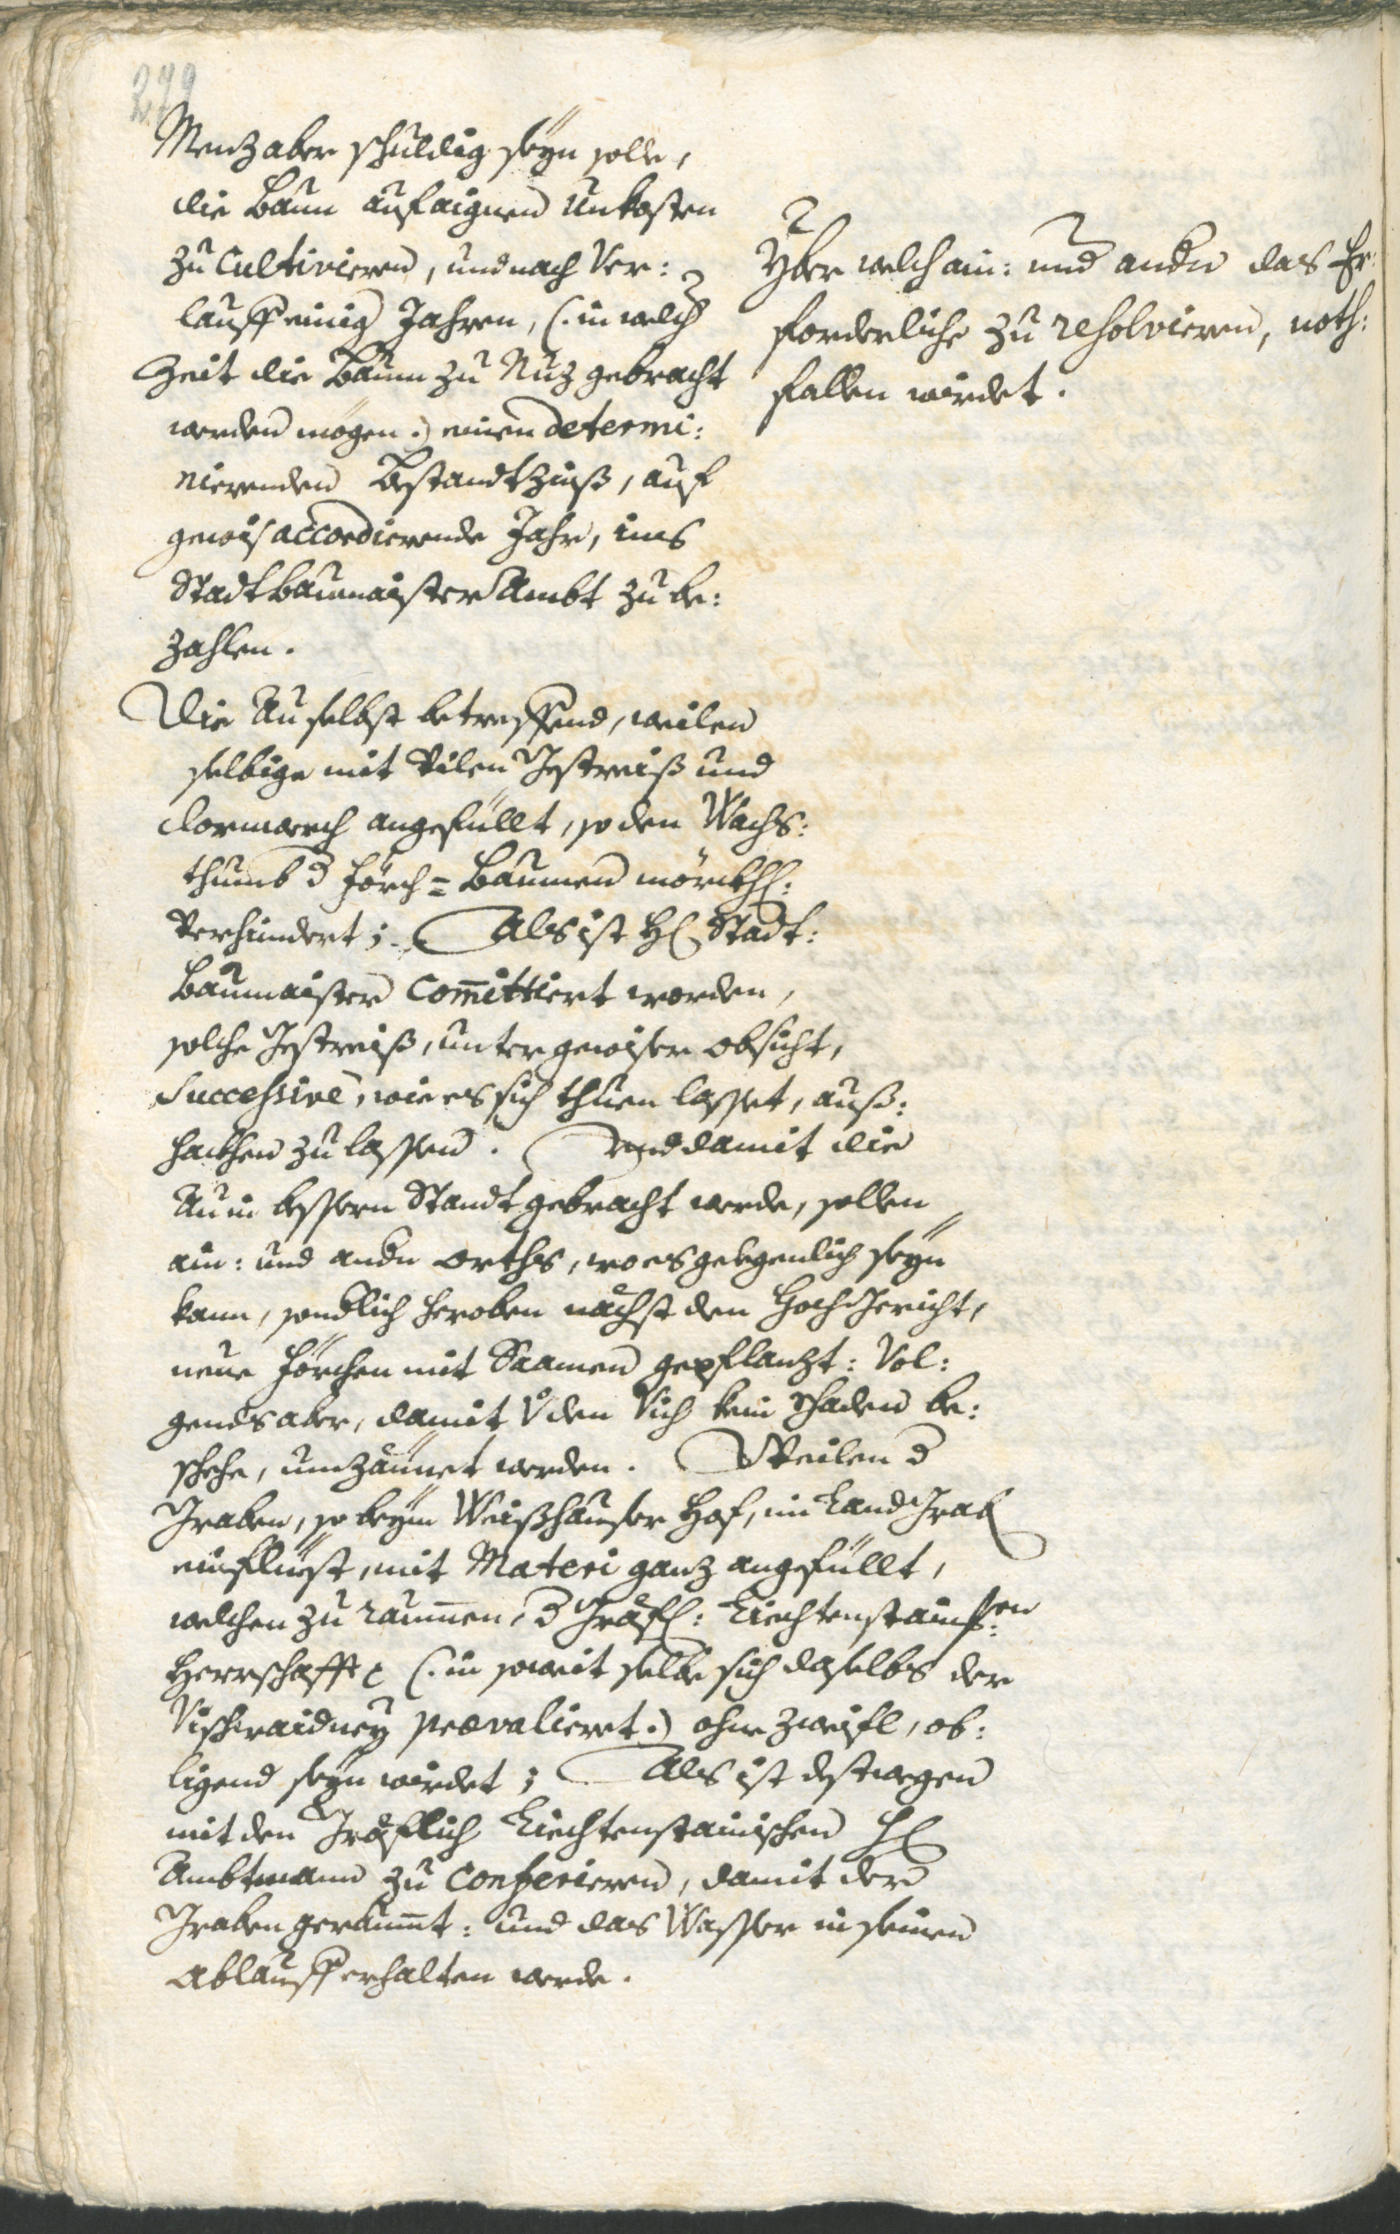 279
Menz aber schuldig seyn solle,
die Baum auf aignen Unkosten
zu Cultivieren, und nach Ver:
lauff einig Jahren, (: in welch
Zeit die Baum zu Nuz gebracht
werden mögen :) einen determi:
nierenden Bestandtzinß, auf
gewis accordierende Jahr, ins
Stadtbaumaister Ambt zu be:
zahlen.
Yber welch ain: und andn das Er:
forderliche zu resolvieren, noth:
fallen wirdet.
Die Au selbst betreffend, weilen
selbige mit vilen Gestreiß und
dornwerch angefüllt, so den Wachs:
thumb d förch= Baumen mörckhl:
verhindert; Als ist H Stadt:
Baumaister Committiert worden,
solche Gestreiß, unter gewiser obsicht,
Successivè, wie es sich thuen lasset, auß:
hackhen zu lassen. Und damit die
Au in bessern Standt gebracht werde, sollen
ain: und andn orths, wo es gelegenlich seyn
kann, sondlich heroben nächst den Hochgericht,
neue förchen mit Saamen gepflanzt: Vol:
gends aber, damit v den Vich kein schaden be:
schehe, umzäunet werden. Weilen d
Graben, so beym Weißhauser Hof, im Landgrab
einfliest, mit Materi ganz angefüllt,
welchen zu raumen, d Gräfl: Liechtenstain:en
Herrschafft (: in soweit selbe sich daselbs der
Vischwaidney praevalieret :) ohne Zweifl, ob:
ligend seyn wirdet; Als ist destwegen
mit den Gräflich Liechtenstainischen H
Ambtmann zu Conferieren, damit der
Graben geraumt: und das Wasser in seinen
Ablauff erhalten werde.